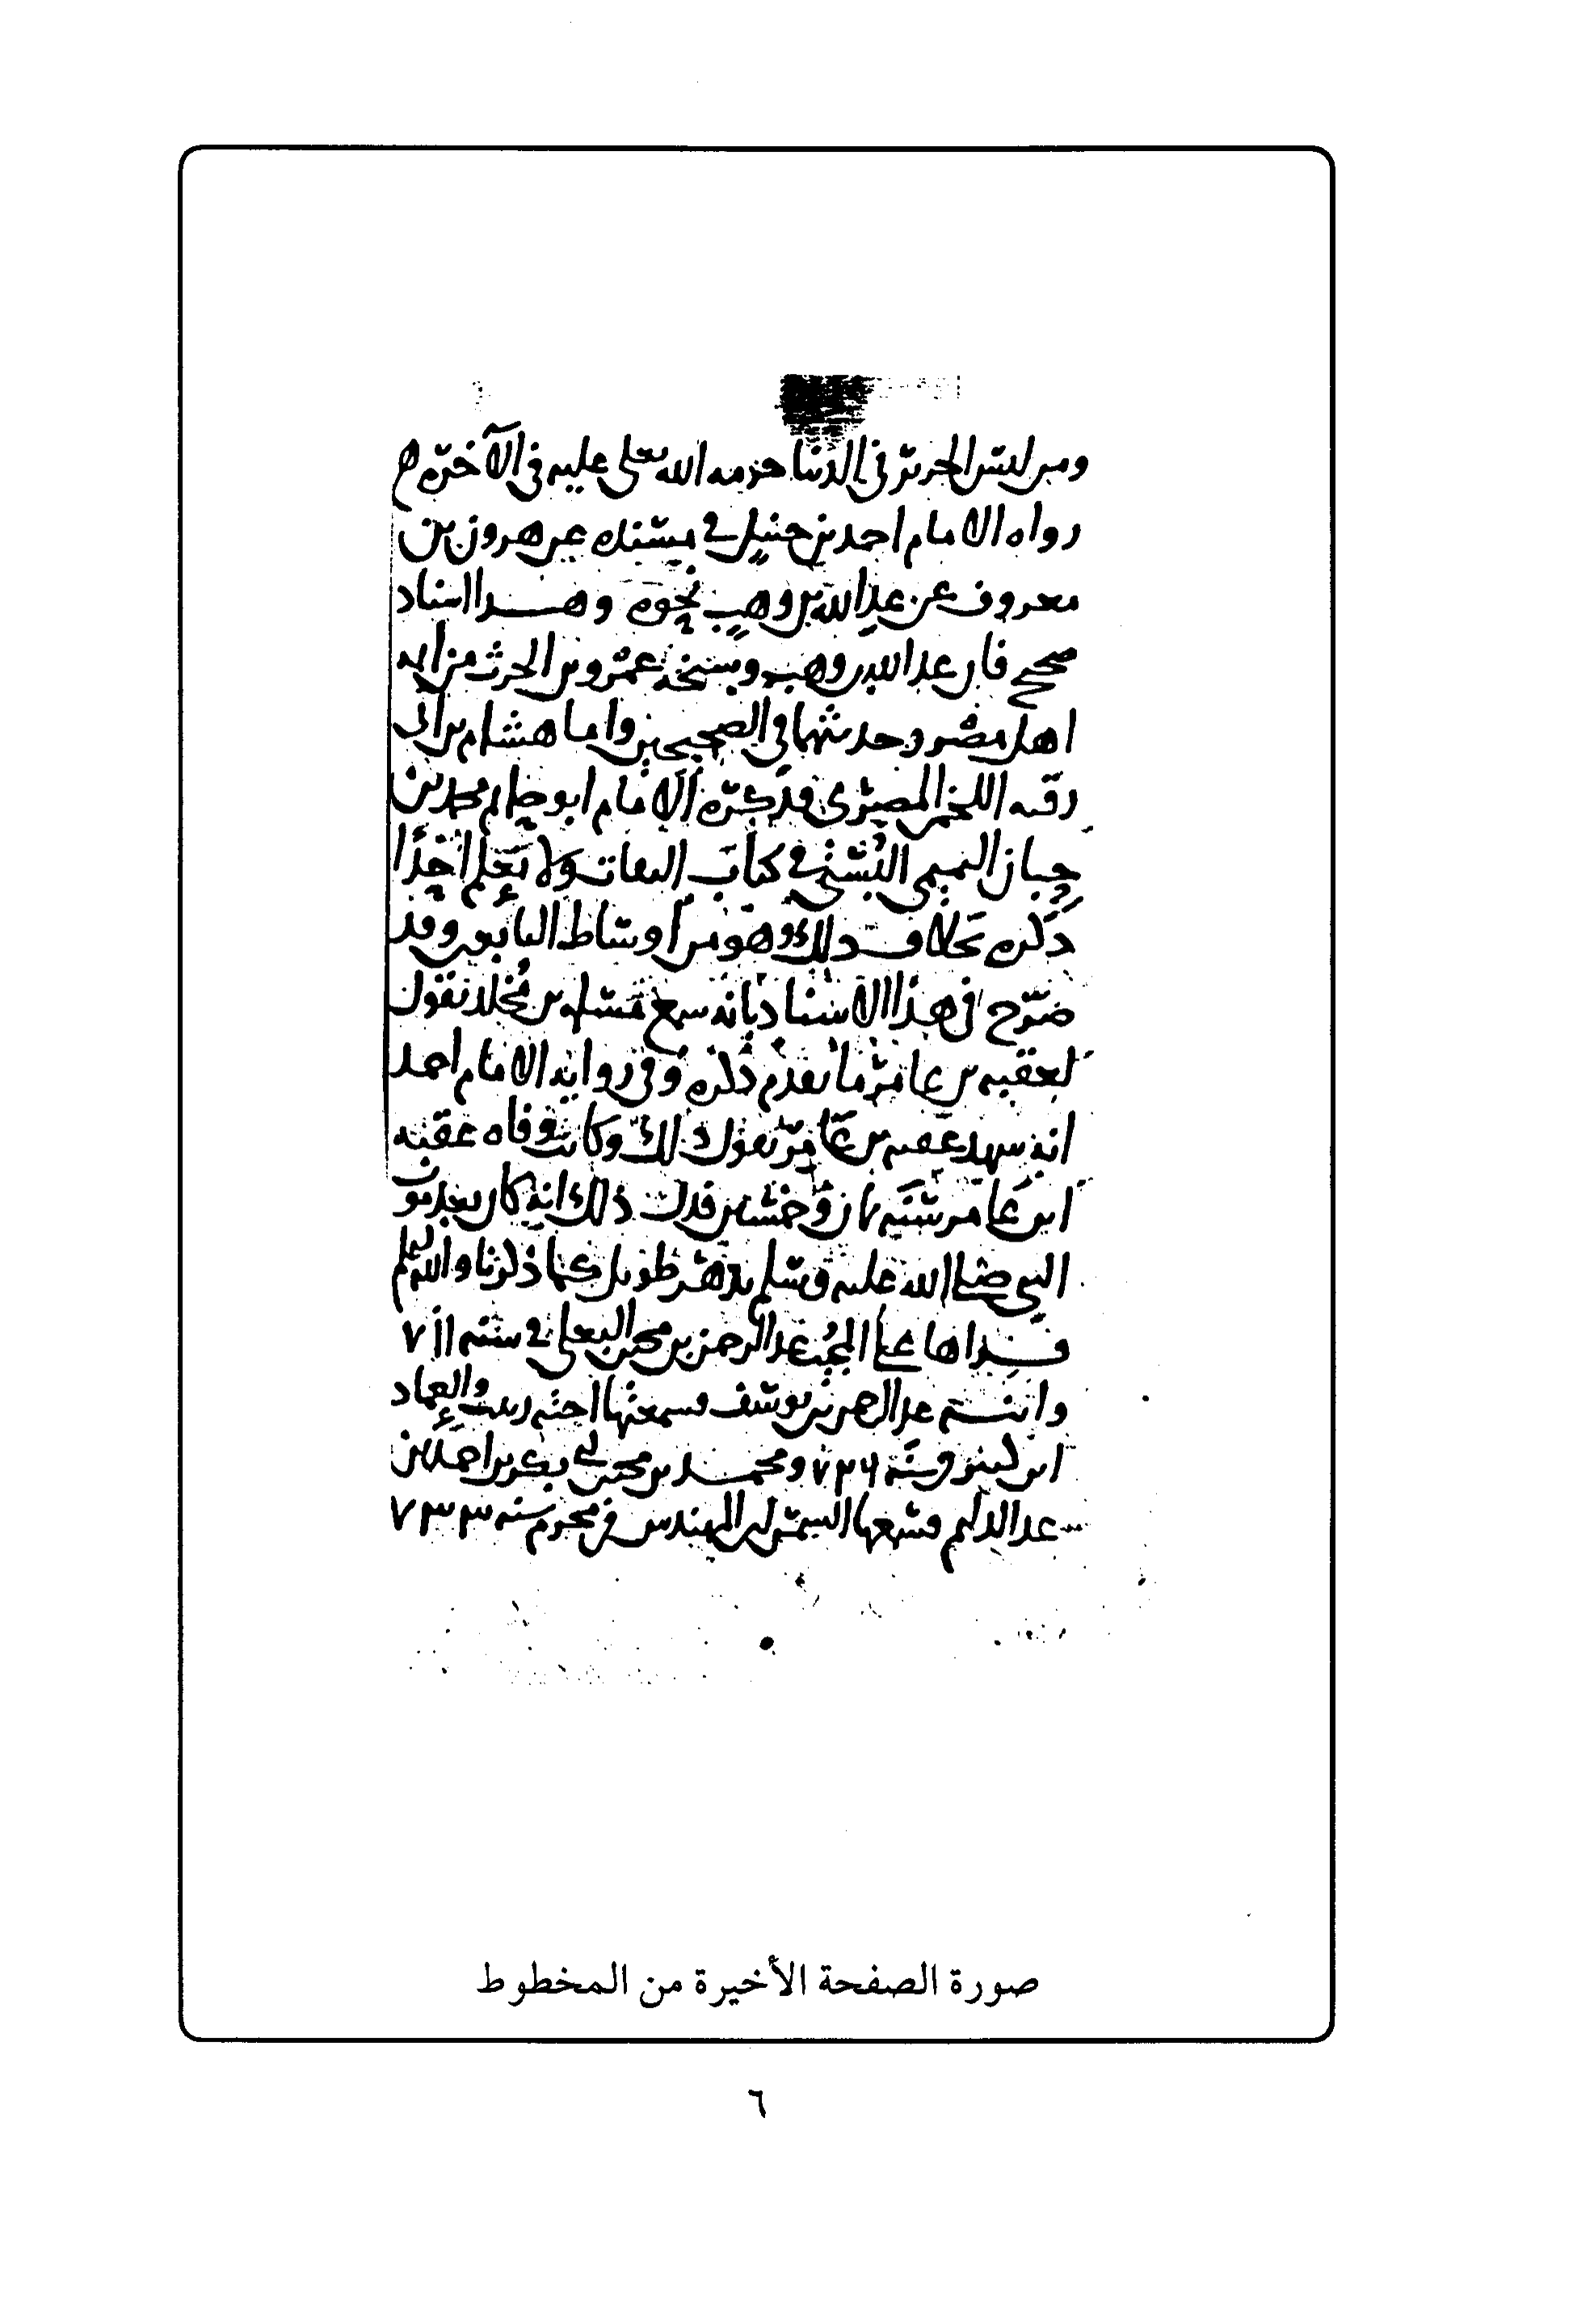 ومن لبس الحرير في الدنيا حرمه الله تعلى عليه في الآخرة
رواه الامام احمد بن حنبل في مسنده عن هرون بن
معروف عن عبد الله بن وهب نحوه وهذا اسناد
صحيح فان عبد الله بن وهب وشيخه عمرو بن الحرث من ايمه
اهل مصر وحديثهما في الصحيحين واما هشام بن ابي
رقيه اللخمي المصري فذكره الامام ابو حاتم محمد بن
حبان التميمي البستي في كتاب الثقات ولا نعلم احدا
ذكره بخلاف ذلك وهو من اوساط التابعين وقد
صرح في هذا الاسناد بانه سمع مسلمه بن مخلد يقول
لعقبه بن عامر ما تقدم ذكره وفي روايه الامام احمد
انه شهد عقبه بن عامر يقول ذلك وكانت وفاه عقبه
ابن عامر سنه ثمان وخمسين فدل ذلك انه كان بعد موت
النبي صلى الله عليه وسلم بدهر طويل كما ذكرنا والله اعلم
قراها على المحب عبد الرحمن بن محمد البعلي في سنه ٧١١
وابنته عبد الرحمن بن يوسف وسمعتها اخته زينب والعماد
ابن كثير في سنه ٧٣٦ ومحمد بن محمد بن ابي بكر بن احمد بن
عبد الدايم وسمعها الشمس ابن المهندس في محرم سنه ٧٣٣
صورة الصفحة الأخيرة من المخطوط
٦